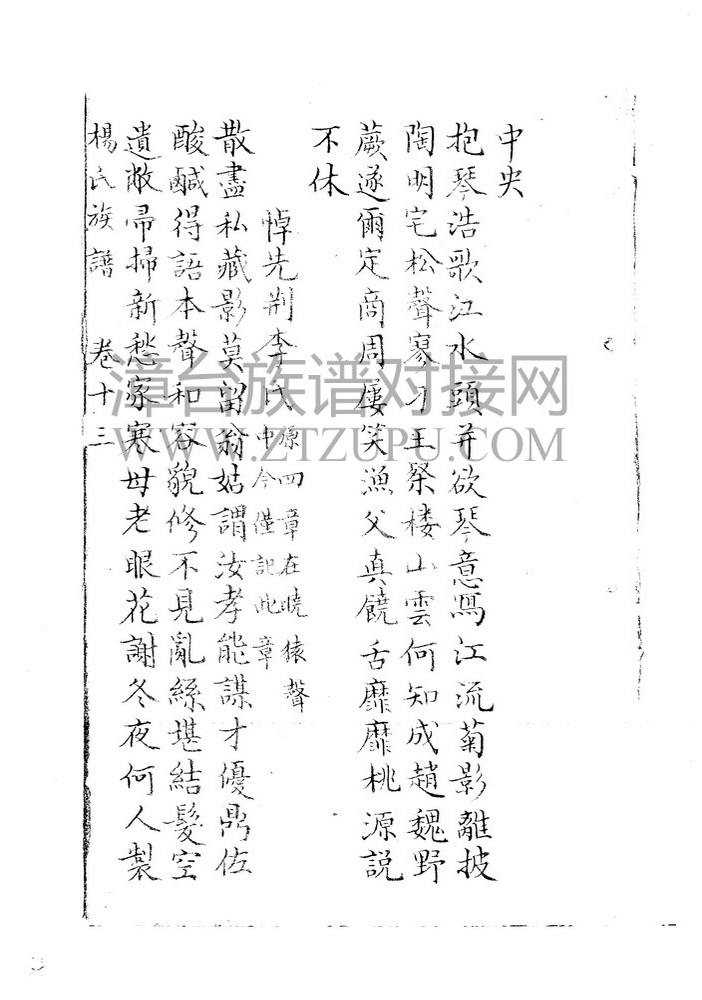 中央
抱琴浩歌江水頭並欲琴意寫江流菊影離披
陶明宅松聲寥 王粲楼山雲何知成趙魏野
蕨遂爾定商周屢笑漁父真饒舌靡靡桃源説
不休
悼先荆李氏 原四章在曉猿聲
中今僅記此章
散盡私藏影莫留翁姑謂汝孝能謀才優鼎佐
酸鹹得語本聲和容貌修不見亂絲堪結髮空
遺敝帚掃新愁家寒母老眼花謝冬夜何人製
楊氏族譜 卷十三
漳台族谱对接网
WWW.ZTZUPU.COM